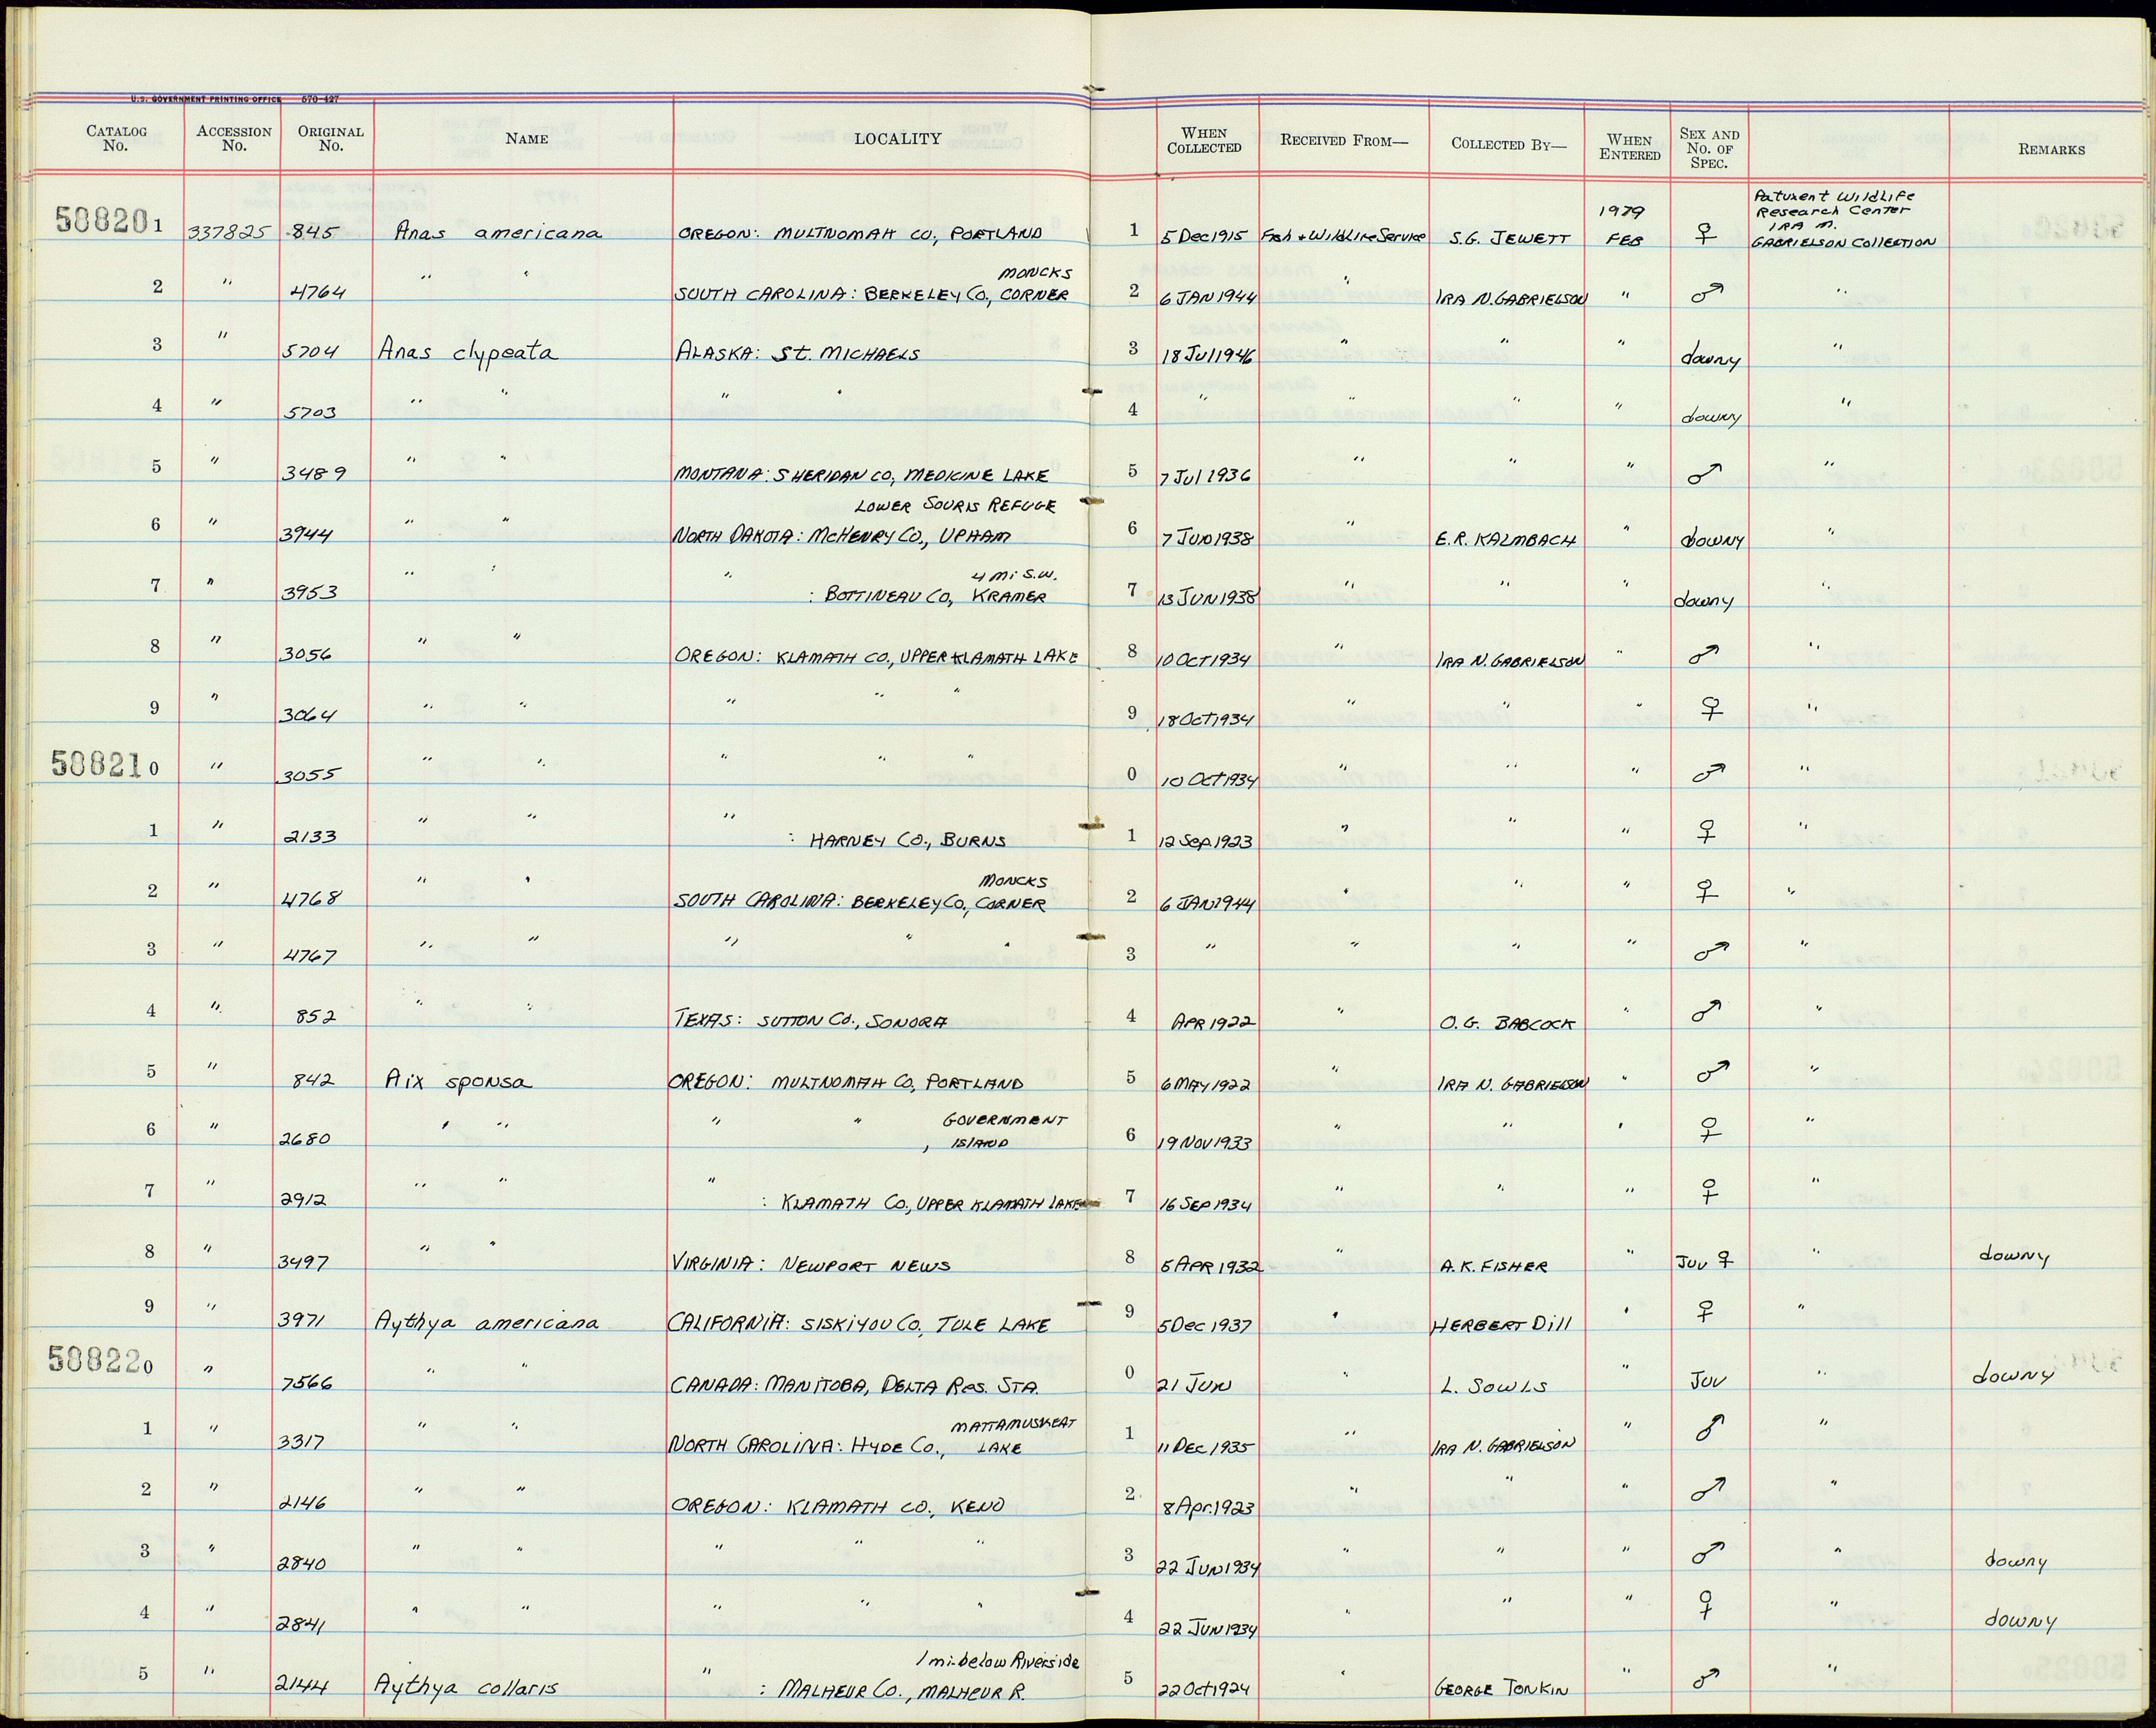 U.S. GOVERNMENT PRINTING OFFICE 670-427
CATALOG No. ACCESSION No. ORIGINAL No. NAME LOCALITY WHEN COLLECTED RECEIVED FROM— COLLECTED BY— WHEN ENTERED SEX AND No. OF SPEC. REMARKS
588201 337825 845 Anas americana OREGON: MULTNOMAH CO., PORTLAND 1 5 Dec 1915 Fish + Wildlife Service S.G. JEWETT 1979 FEB ♀ Patuxent Wildlife Research Center IRA N. GABRIELSON COLLECTION
2 " 4764 " " SOUTH CAROLINA: BERKELEY CO., MONCKS CORNER 2 6 JAN 1944 " IRA N. GABRIELSON " ♂ "
3 " 5704 Anas clypeata ALASKA: St. MICHAELS 3 18 Jul 1946 " " " downy "
4 " 5703 " " " " 4 " " " " downy "
5 " 3489 " " MONTANA: SHERIDAN CO, MEDICINE LAKE 5 7 Jul 1936 " " " ♂ "
6 " 3944 " " LOWER SOURIS REFUGE NORTH DAKOTA: McHENRY CO., UPHAM 6 7 JUN 1938 " E.R. KALMBACH " downy "
7 " 3953 " " " : BOTTINEAU CO, 4 mi S.W. KRAMER 7 13 JUN 1938 " " " downy "
8 " 3056 " " OREGON: KLAMATH CO., UPPER KLAMATH LAKE 8 10 OCT 1934 " IRA N. GABRIELSON " ♂ "
9 " 3064 " " " " " 9 18 Oct 1934 " " " ♀ "
588210 " 3055 " " " " " 0 10 Oct 1934 " " " ♂ "
1 " 2133 " " " : HARNEY CO., BURNS 1 12 Sep. 1923 " " " ♀ "
2 " 4768 " " SOUTH CAROLINA: BERKELEY CO., MONCKS CORNER 2 6 JAN 1944 " " " ♀ "
3 " 4767 " " " " " 3 " " " " ♂ "
4 " 852 " " TEXAS: SUTTON CO., SONORA 4 APR 1922 " O.G. BABCOCK " ♂ "
5 " 842 Aix sponsa OREGON: MULTNOMAH CO, PORTLAND 5 6 MAY 1922 " IRA N. GABRIELSON " ♂ "
6 " 2680 " " " " , GOVERNMENT ISLAND 6 19 NOV 1933 " " " ♀ "
7 " 2912 " " " : KLAMATH CO., UPPER KLAMATH LAKE 7 16 SEP 1934 " " " ♀ "
8 " 3497 " " VIRGINIA: NEWPORT NEWS 8 5 APR 1932 " A.K. FISHER " Juv ♀ " downy
9 " 3971 Aythya americana CALIFORNIA: SISKIYOU CO, TULE LAKE 9 5 Dec 1937 " HERBERT Dill " ♀ "
588220 " 7566 " " CANADA: MANITOBA, DELTA Res. STA. 0 21 JUN " L. SOWLS " Juv " downy
1 " 3317 " " NORTH CAROLINA: HYDE CO., MATTAMUSKEAT LAKE 1 11 DEC 1935 " IRA N. GABRIELSON " ♂ "
2 " 2146 " " OREGON: KLAMATH CO., KENO 2 8 Apr. 1923 " " " ♂ "
3 " 2840 " " " " " 3 22 JUN 1934 " " " ♂ " downy
4 " 2841 " " " " " 4 22 JUN 1934 " " " ♀ " downy
5 " 2144 Aythya collaris " : MALHEUR CO., 1 mi. below Riverside MALHEUR R. 5 22 Oct 1924 " GEORGE TONKIN " ♂ "